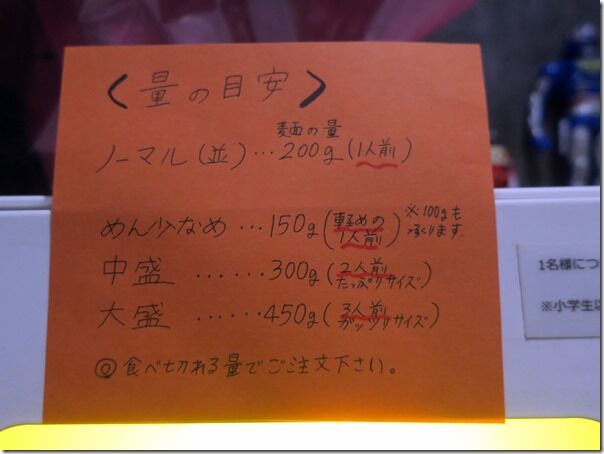 〈量の目安〉
麺の量
ノーマル(並)…200g(1人前)
めん少なめ…150g(軽めの1人前)
※100gも
承ります。
中盛……300g(2人前 たっぷりサイズ)
大盛……450g(3人前 ガッツリサイズ)
◎食べ切れる量でご注文下さい。
1名様につ
※小学生以